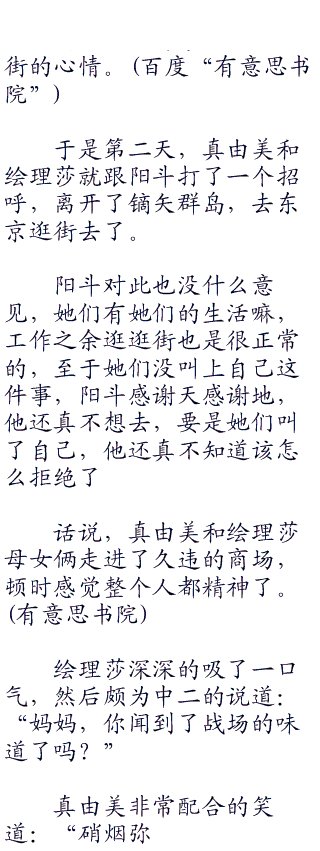 街的心情。(百度“有意思书
院”)
于是第二天，真由美和
绘理莎就跟阳斗打了一个招
呼，离开了镝矢群岛，去东
京逛街去了。
阳斗对此也没什么意
见，她们有她们的生活嘛，
工作之余逛逛街也是很正常
的，至于她们没叫上自己这
件事，阳斗感谢天感谢地，
他还真不想去，要是她们叫
了自己，他还真不知道该怎
么拒绝了
话说，真由美和绘理莎
母女俩走进了久违的商场，
顿时感觉整个人都精神了。
(有意思书院)
绘理莎深深的吸了一口
气，然后颇为中二的说道：
“妈妈，你闻到了战场的味
道了吗？”
真由美非常配合的笑
道：“硝烟弥